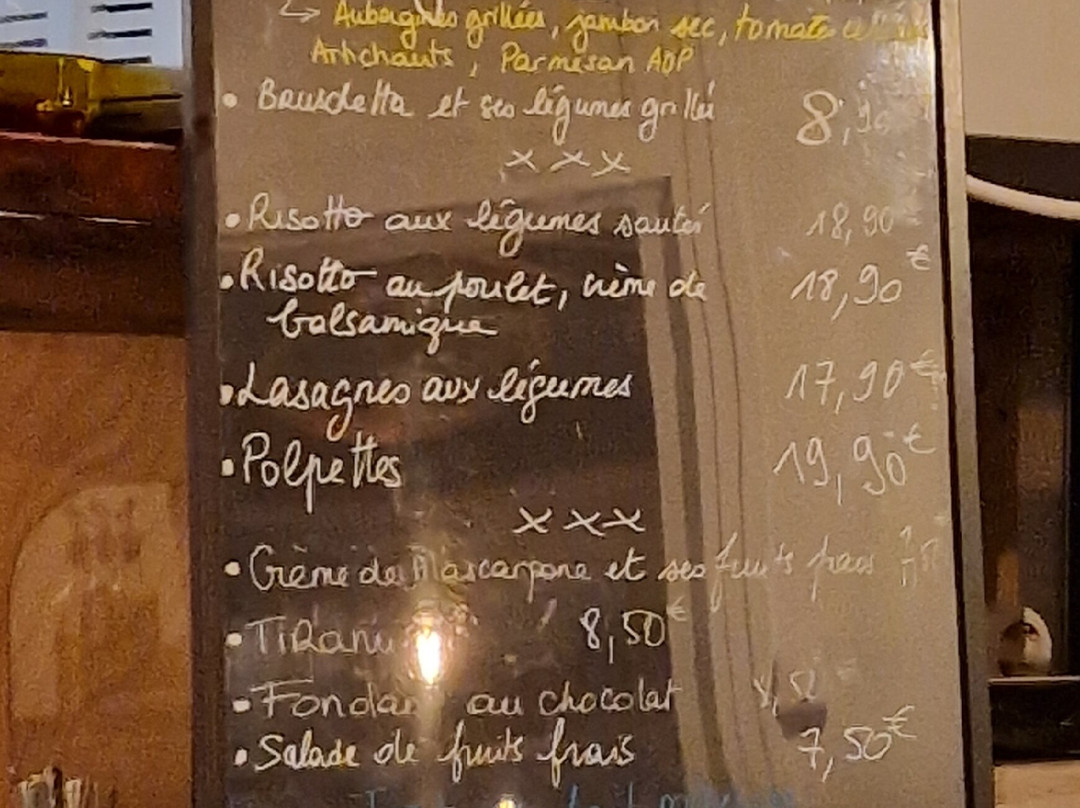 ↳ Aubergines grillées, jambon sec, tomate
Artichauts, Parmesan AOP
• Bruschetta et ses légumes grillés 8,90
x x x
• Risotto aux légumes sautés 18,90
• Risotto au poulet, crème de 18,90 €
balsamique
• Lasagnes aux légumes 17,90 €
• Polpettes 19,90 €
x x x
• Crème de Mascarpone et ses fruits
8,50 €
• Fondant au chocolat
• Salade de fruits frais 7,50 €